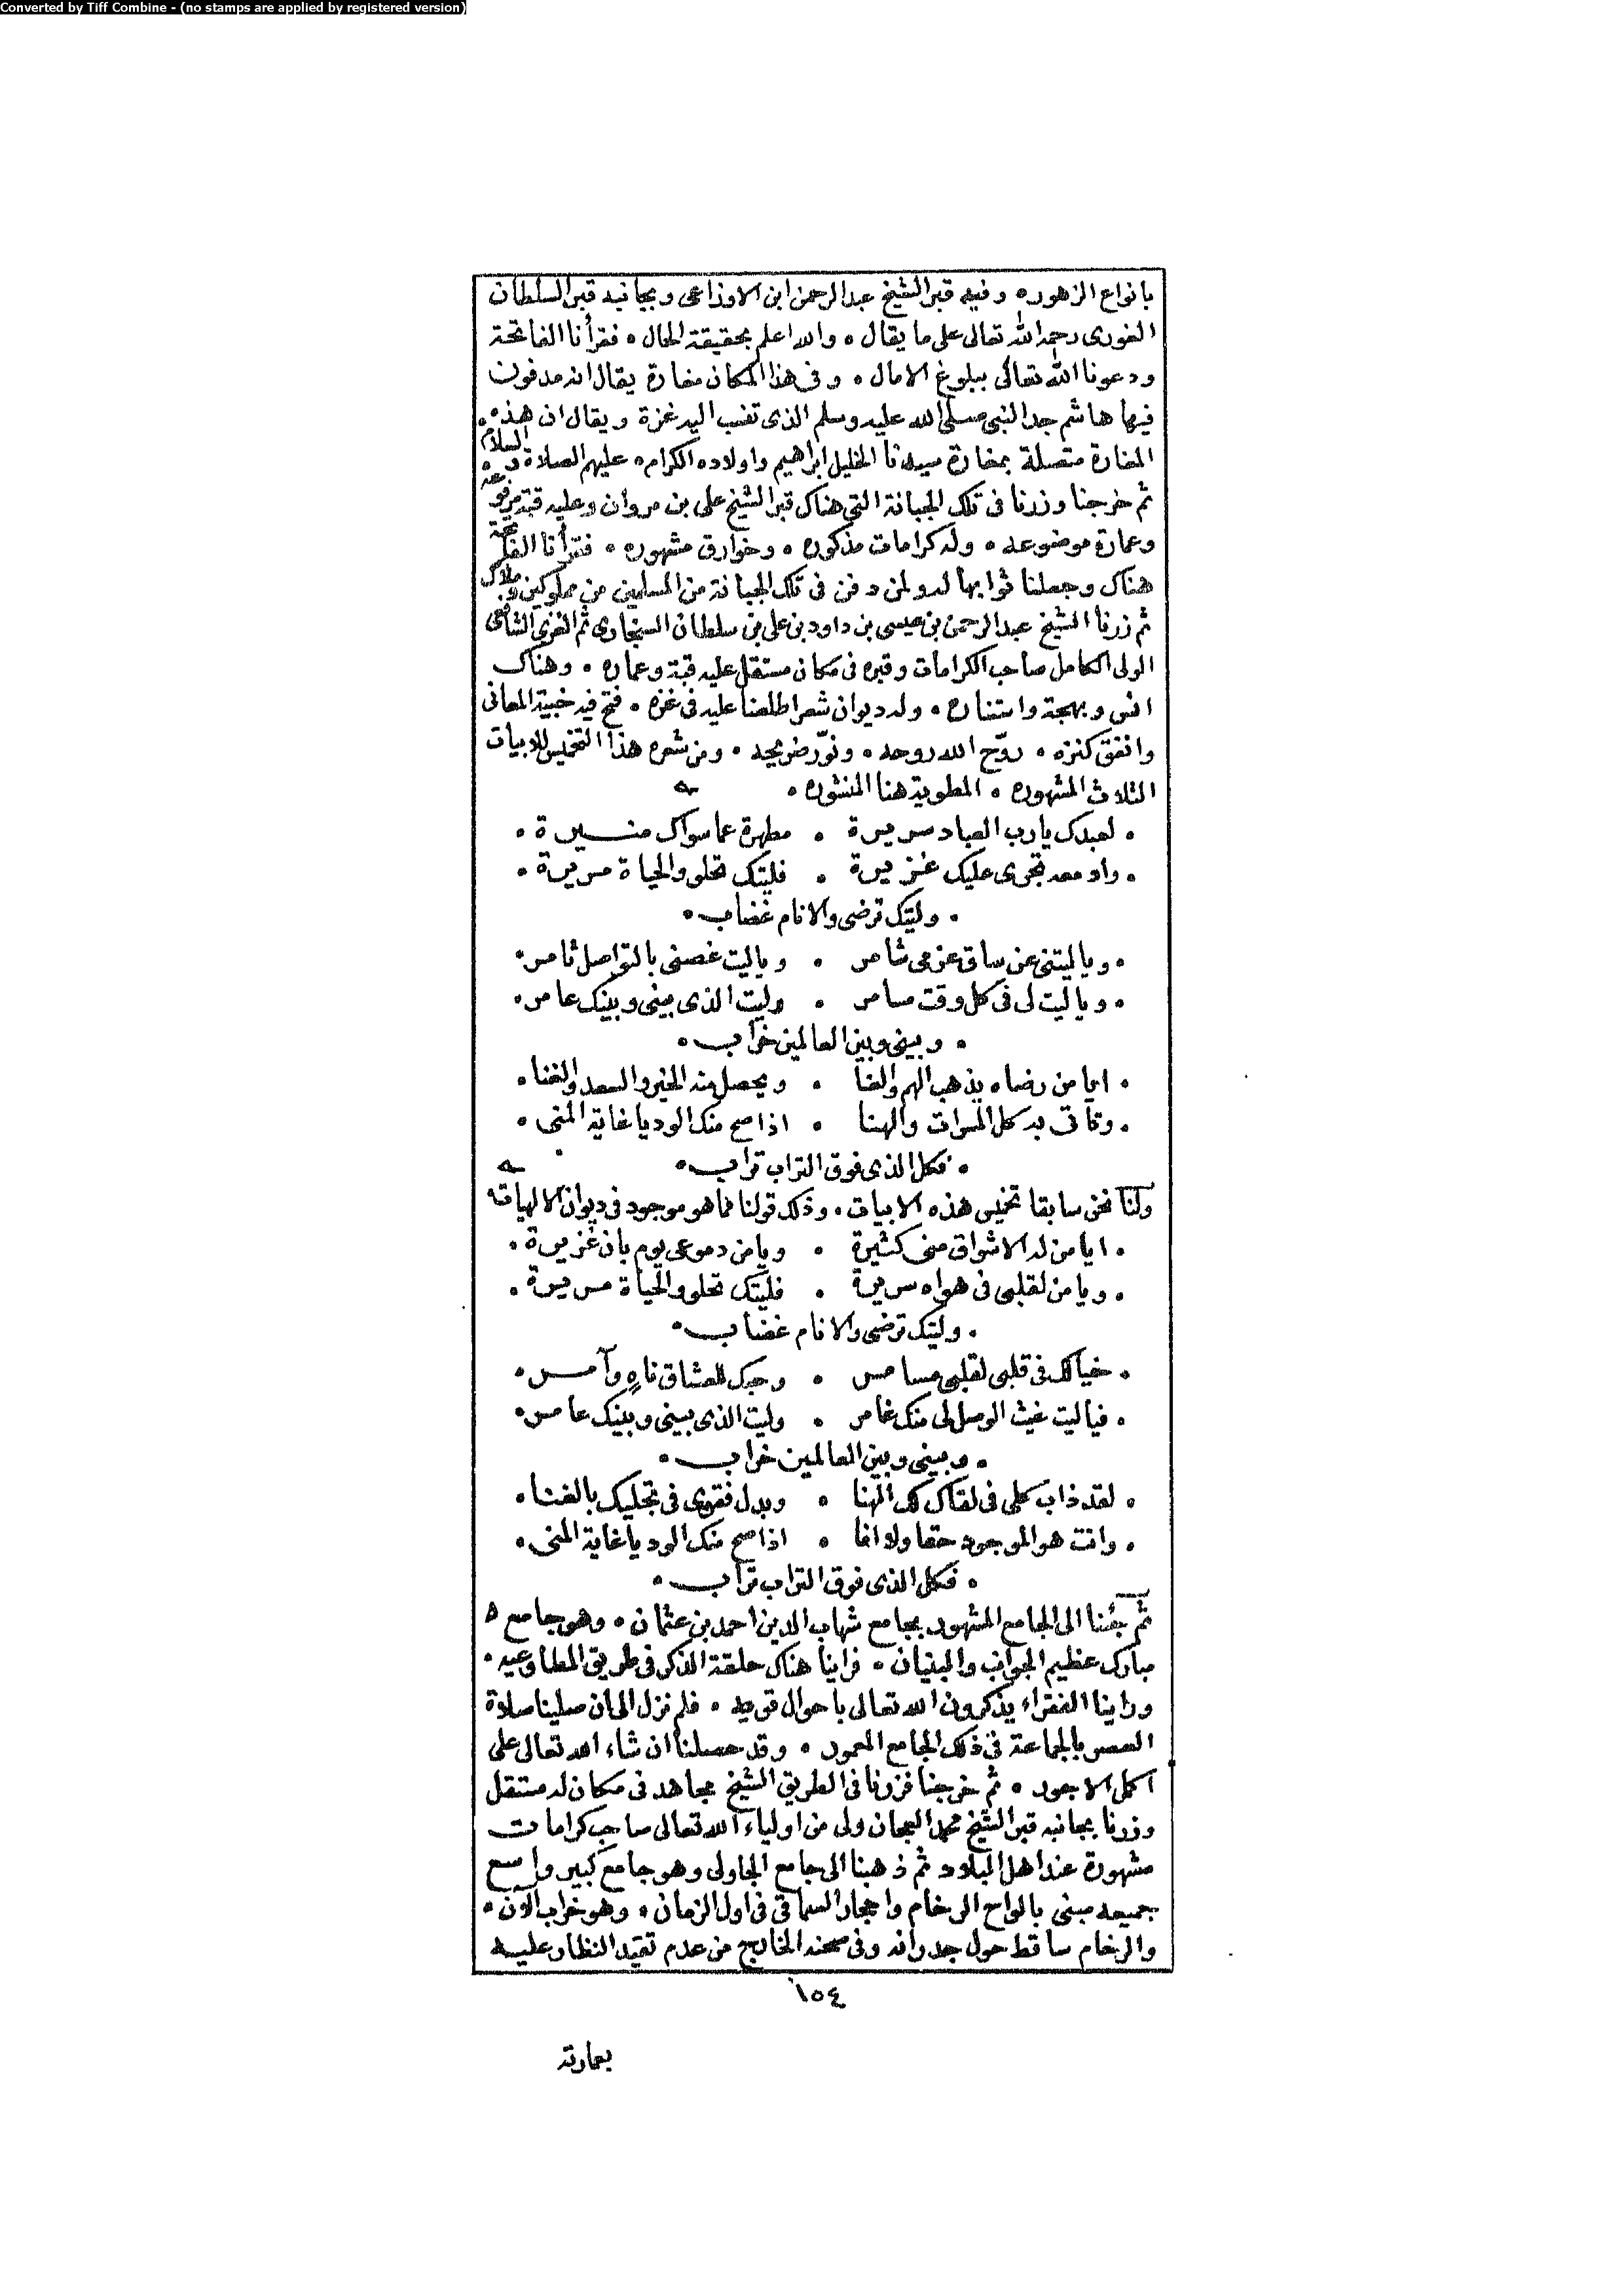 Converted by Tiff Combine - (no stamps are applied by registered version)
بانواع الزهوره وفيه قبر الشيخ عبد الرحمن ابن الاوزاعى وبجانبه قبر السلطان
الغورى رحمه الله تعالى على ما يقال ٥ والله اعلم بحقيقة الحال ٥ فقرأنا الفاتحة
ودعونا الله تعالى ببلوغ الامال ٥ وفى هذا المكان مغارة يقال انه مدفون
فيها هاشم جد النبى صلى الله عليه وسلم الذى تنسب اليه غزة ويقال ان هذه
المغارة متصلة بمغارة سيدنا الخليل ابراهيم واولاده الكرام ٥ عليهم الصلاة والسلام
ثم خرجنا وزرنا فى تلك الجبانة التى هناك قبر الشيخ على بن مروان وعليه قبة مرفوعة
وعمارة موضوعه ٥ وله كرامات مذكوره ٥ وخوارق مشهوره ٥ فقرأنا الفاتحة
هناك وجعلنا ثوابها له ولمن دفن فى تلك الجبانة من المسلمين من مملوكين وملاك
ثم زرنا الشيخ عبد الرحمن بن عيسى بن داود بن على بن سلطان السنجارى ثم الغزى الشافعى
الولى الكامل صاحب الكرامات وقبره فى مكان مستقل عليه قبة وعماره ٥ وهناك
انس وبهجة واستناره ٥ وله ديوان شعر اطلعنا عليه فى غزه ٥ فتح فيه خبية المعانى
وانفق كنزه ٥ روّح الله روحه ٥ ونوّر ضريحه ٥ ومن شعره هذا التخميس للابيات
الثلاث المشهوره ٥ المطوية هنا المنشوره ٥
٥ لعبدك يارب العباد سريرة ٥ مطهرة عما سواك منيرة ٥
٥ وادمعه تجرى عليك غزيرة ٥ فليتك تحلو والحياة مريرة ٥
٥ وليتك ترضى والانام غضاب ٥
٥ وياليتنى عن ساق عزمى شامر ٥ وياليت غصنى بالتواصل ثامر ٥
٥ وياليت لى فى كل وقت مسامر ٥ وليت الذى بينى وبينك عامر ٥
٥ وبينى وبين العالمين خراب ٥
٥ ايا من رضاه يذهب الهم والعنا ٥ ويحصل منه الخير والسعد والغنا ٥
٥ وتاتى به كل المسرات والهنا ٥ اذا صح منك الود يا غاية المنى ٥
٥ فكل الذى فوق التراب تراب ٥
ولنا نحن سابقا تخميس هذه الابيات ٥ وذلك قولنا مما هو موجود فى ديوان الالهيات
٥ ايا من له الاشواق منى كثيرة ٥ ويا من دموعى يوم بان غزيرة ٥
٥ ويا من لقلبى فى هواه سريرة ٥ فليتك تحلو والحياة مريرة ٥
٥ وليتك ترضى والانام غضاب ٥
٥ خيالك فى قلبى لقلبى مسامر ٥ وحبك للعشاق ناهٍ وآمر ٥
٥ فياليت غيث الوصل لى منك غامر ٥ وليت الذى بينى وبينك عامر ٥
٥ وبينى وبين العالمين خراب ٥
٥ لقد ذاب كلى فى لقاك لك الهنا ٥ وبدل فقرى فى تجليك بالغنا ٥
٥ وانت هو الموجود حقا ولا انا ٥ اذا صح منك الود يا غاية المنى ٥
٥ فكل الذى فوق التراب تراب ٥
ثم جئنا الى الجامع المشهور بجامع شهاب الدين احمد بن عثمان ٥ وهو جامع
مبارك عظيم الجوانب والبنيان ٥ فراينا هناك حلقة الذكر فى طريق المطاوعيه ٥
وراينا الفقراء يذكرون الله تعالى باحوال قويه ٥ فلم نزل الى ان صلينا صلاة
العصر بالجماعة فى ذلك الجامع المعمور ٥ وقد حصلنا ان شاء الله تعالى على
اكمل الاجور ٥ ثم خرجنا فزرنا فى الطريق الشيخ مجاهد فى مكان له مستقل
وزرنا بجانبه قبر الشيخ محمد العجان ولى من اولياء الله تعالى صاحب كرامات
مشهورة عند اهل البلاد ثم ذهبنا الى جامع الجاولى وهو جامع كبير واسع
جميعه مبنى بالواح الرخام واحجار السماقى فى اول الزمان ٥ وهو خراب الآن ٥
والرخام ساقط حول جدرانه وفى صحنه الخارج من عدم تقيد النظار عليه
١٥٤
بعمارته